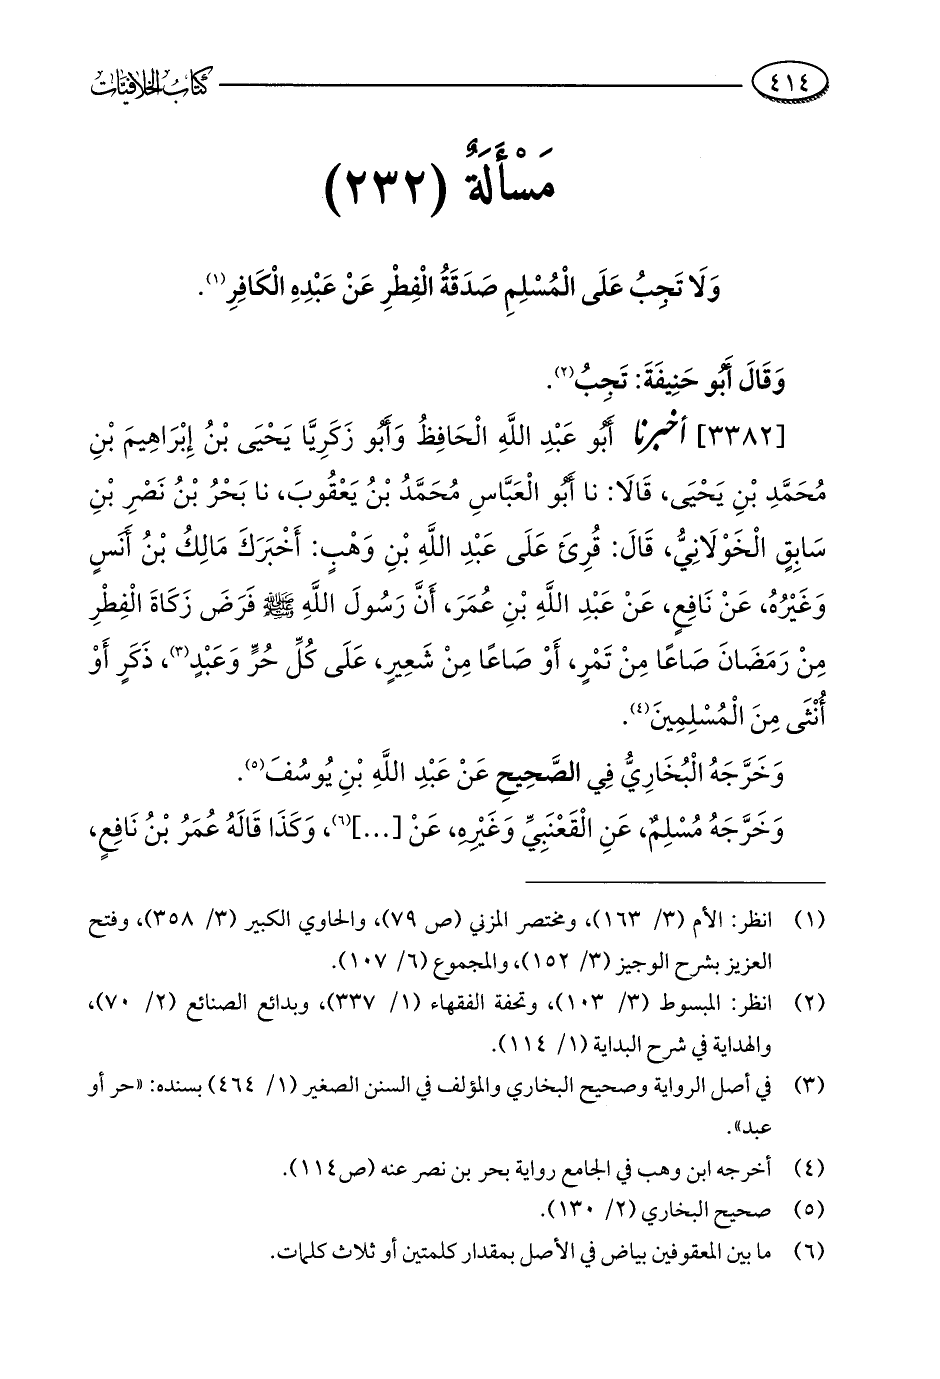 ٤١٤ كتاب الخلافيات
مَسْأَلَةٌ (٢٣٢)
وَلَا تَجِبُ عَلَى الْمُسْلِمِ صَدَقَةُ الْفِطْرِ عَنْ عَبْدِهِ الْكَافِرِ(١).
وَقَالَ أَبُو حَنِيفَةَ: تَجِبُ(٢).
[٣٣٨٢] أخبرنا أَبُو عَبْدِ اللَّهِ الْحَافِظُ وَأَبُو زَكَرِيَّا يَحْيَى بْنُ إِبْرَاهِيمَ بْنِ
مُحَمَّدِ بْنِ يَحْيَى، قَالَا: نا أَبُو الْعَبَّاسِ مُحَمَّدُ بْنُ يَعْقُوبَ، نا بَحْرُ بْنُ نَصْرِ بْنِ
سَابِقٍ الْخَوْلَانِيُّ، قَالَ: قُرِئَ عَلَى عَبْدِ اللَّهِ بْنِ وَهْبٍ: أَخْبَرَكَ مَالِكُ بْنُ أَنَسٍ
وَغَيْرُهُ، عَنْ نَافِعٍ، عَنْ عَبْدِ اللَّهِ بْنِ عُمَرَ، أَنَّ رَسُولَ اللَّهِ ﷺ فَرَضَ زَكَاةَ الْفِطْرِ
مِنْ رَمَضَانَ صَاعًا مِنْ تَمْرٍ، أَوْ صَاعًا مِنْ شَعِيرٍ، عَلَى كُلِّ حُرٍّ وَعَبْدٍ(٣)، ذَكَرٍ أَوْ
أُنْثَى مِنَ الْمُسْلِمِينَ(٤).
وَخَرَّجَهُ الْبُخَارِيُّ فِي الصَّحِيحِ عَنْ عَبْدِ اللَّهِ بْنِ يُوسُفَ(٥).
وَخَرَّجَهُ مُسْلِمٌ، عَنِ الْقَعْنَبِيِّ وَغَيْرِهِ، عَنْ [...](٦)، وَكَذَا قَالَهُ عُمَرُ بْنُ نَافِعٍ،
(١) انظر: الأم (٣/ ١٦٣)، ومختصر المزني (ص ٧٩)، والحاوي الكبير (٣/ ٣٥٨)، وفتح
العزيز بشرح الوجيز (٣/ ١٥٢)، والمجموع (٦/ ١٠٧).
(٢) انظر: المبسوط (٣/ ١٠٣)، وتحفة الفقهاء (١/ ٣٣٧)، وبدائع الصنائع (٢/ ٧٠)،
والهداية في شرح البداية (١/ ١١٤).
(٣) في أصل الرواية وصحيح البخاري والمؤلف في السنن الصغير (١/ ٤٦٤) بسنده: «حر أو
عبد».
(٤) أخرجه ابن وهب في الجامع رواية بحر بن نصر عنه (ص١١٤).
(٥) صحيح البخاري (٢/ ١٣٠).
(٦) ما بين المعقوفين بياض في الأصل بمقدار كلمتين أو ثلاث كلمات.